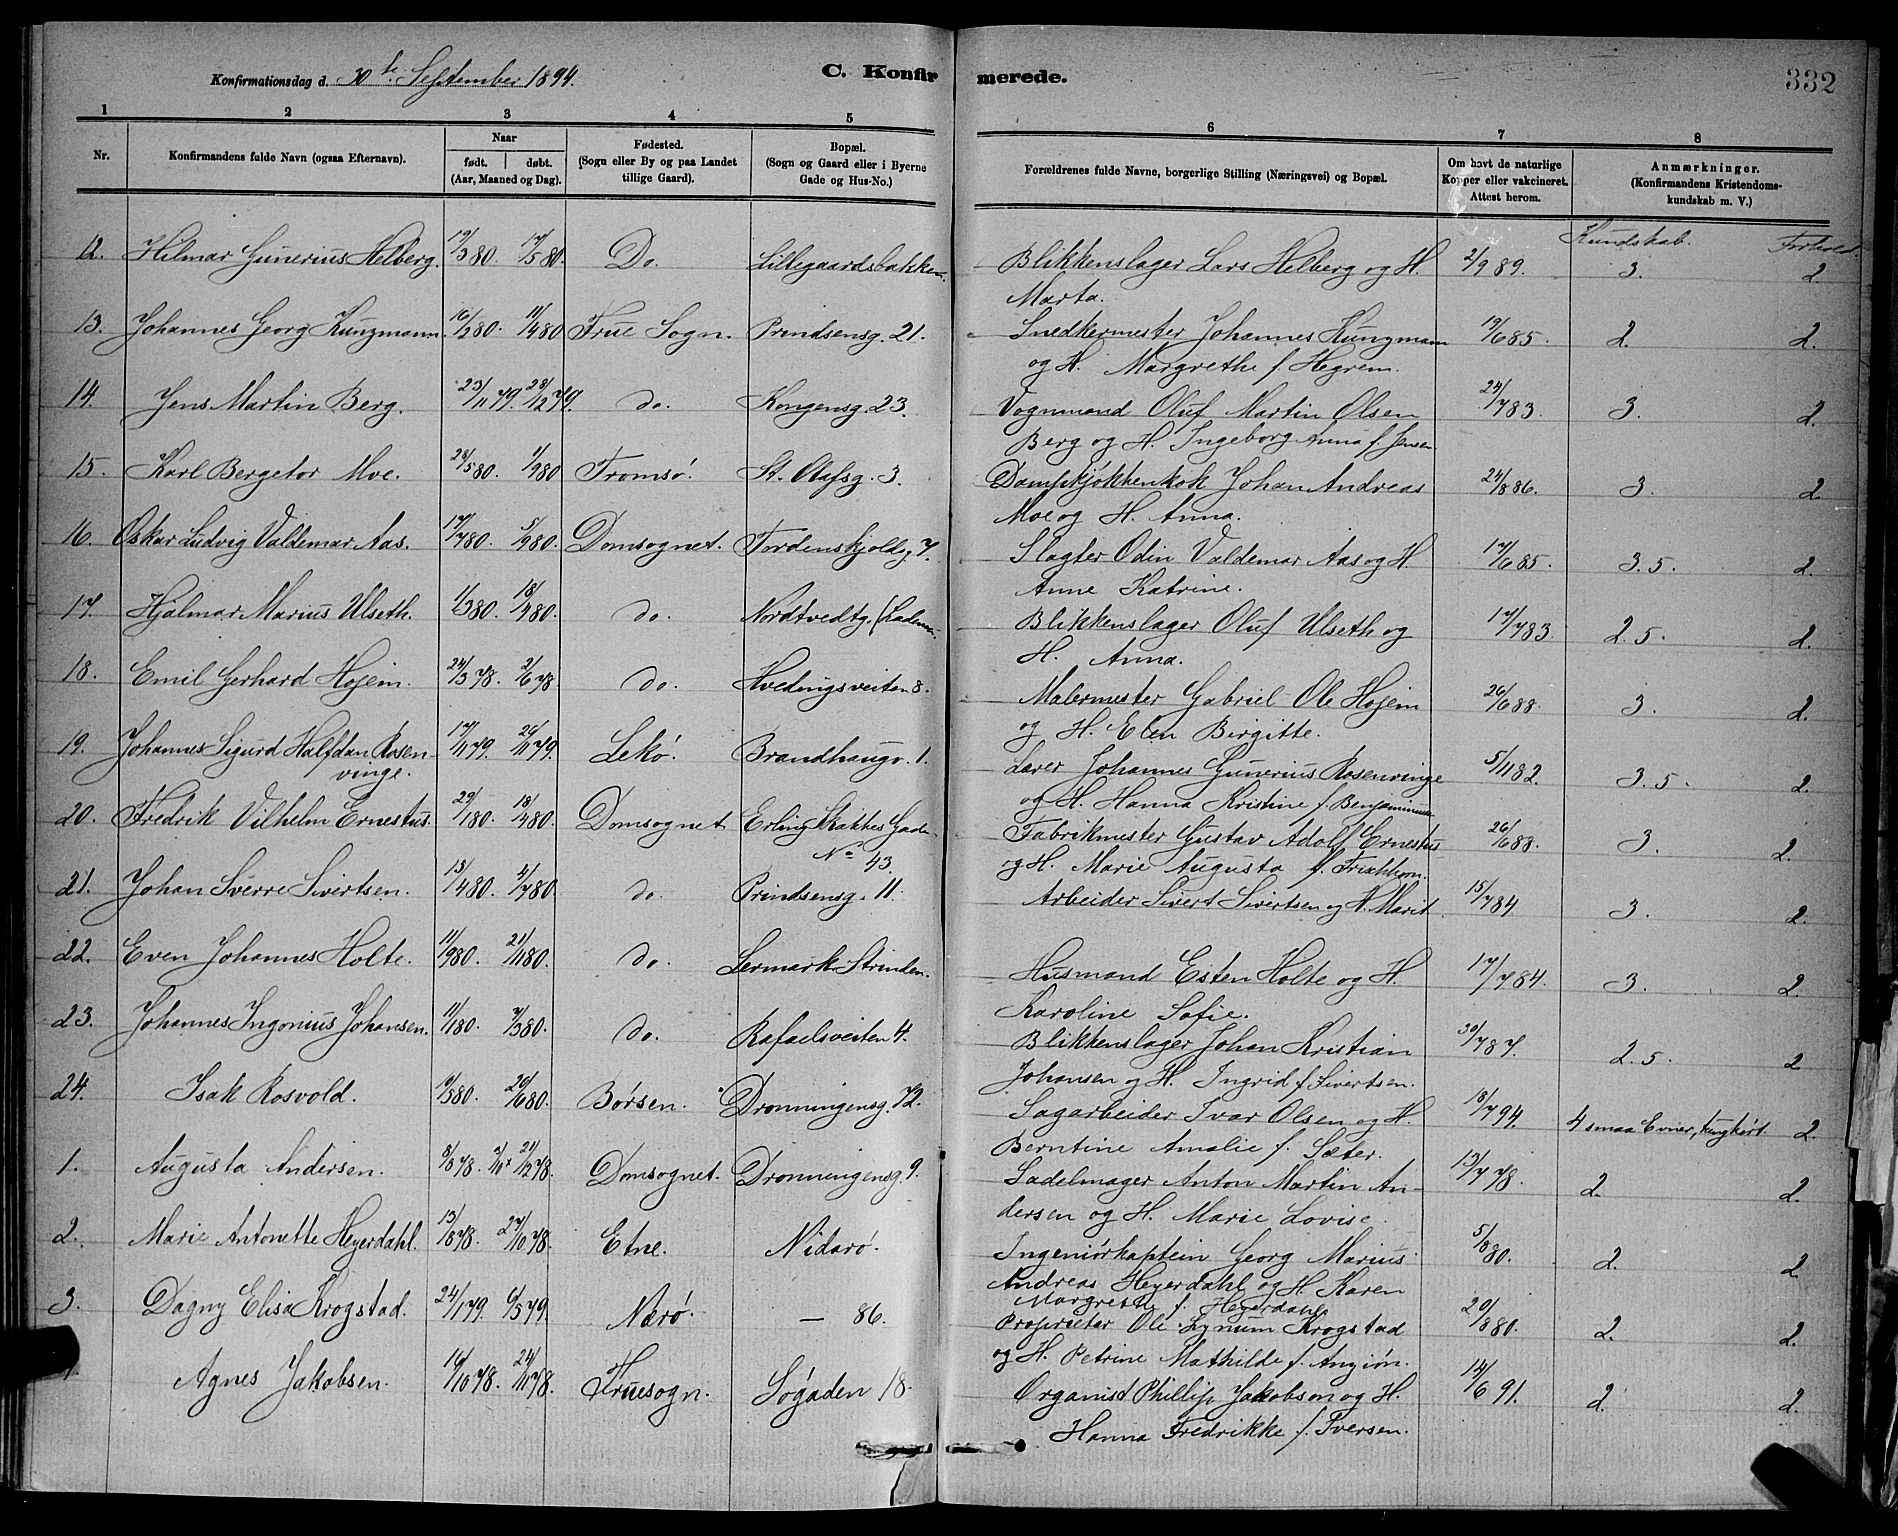 Konfirmationsdag d. 30te September 1894.
C. Konfirmerede.
332
1 2 3 4 5 6 7 8
Nr. Konfirmandens fulde Navn (ogsaa Efternavn). Naar født. døbt. (Aar, Maaned og Dag). Fødested. (Sogn eller By og paa Landet tillige Gaard). Bopæl. (Sogn og Gaard eller i Byerne Gade og Hus-No.) Forældrenes fulde Navne, borgerlige Stilling (Næringsvei) og Bopæl. Om havt de naturlige Kopper eller vakcineret. Attest herom. Anmærkninger. (Konfirmandens Kristendomskundskab m. V.)
Kundskab. Forhold.
12. Hilmar Gunerius Helberg. 19/3 80. 17/5 80. Do. Lillegaardsbakken. Blikkenslager Lars Helberg og H. 2/9 89. 3. 2
Marta.
13. Johannes Georg Kunzmann. 16/2 80. 11/4 80 Frue Sogn. Prindsensg. 21. Snedkermester Johannes Kunzmann 19/6 85. 2. 2.
og H. Margrethe f. Hegrem.
14. Jens Martin Berg. 23/11 79. 28/12 79. do. Kongensg. 23. Vognmand Oluf Martin Olsen 24/7 83. 3. 2.
Berg og H. Ingeborg Anna f. Jensen
15. Karl Bergetor Moe. 28/5 80. 1/9 80 Tromsø. St. Olafsg. 3. Dampkjøkkenkok Johan Andreas 24/8 86. 3. 2
Moe og H. Anna.
16. Oskar Ludvig Valdemar Aas. 17/7 80. 5/9 80. Domsognet. Tordenskjoldsg. 7. Slagter Odin Valdemar Aas og H. 17/6 85. 3.5. 2.
Anne Katrine.
17. Hjalmar Marius Ulseth. 1/3 80. 18/4 80. do. Nordtvedtg. Blikkenslager Oluf Ulseth og 17/7 83. 2.5. 2.
H. Anna.
18. Emil Gerhard Hojem. 24/3 78. 2/6 78 do. Hvedingsveiten 8. Malermester Gabriel Ole Hojem 26/6 88. 3. 2.
og H. Elen Birgitte.
19. Johannes Sigurd Halfdan Rosen- 17/11 79. 29/11 79. Lekø. Brandhaugv. 1. Lærer Johannes Gunerius Rosenvinge 5/11 82. 3.5. 2.
vinge. og H. Hanna Kristine f. Benjaminsen
20. Fredrik Vilhelm Ernestus. 29/1 80. 18/4 80. Domsognet Erling Skakkes Gade Fabrikmester Gustav Adolf Ernestus 26/6 88. 3. 2.
No 43. og H. Marie Augusta f.
21. Johan Sverre Sivertsen. 13/4 80. 4/7 80. do. Prindsensg. 11. Arbeider Sivert Sivertsen og H. Marit. 15/7 84. 3. 2.
22. Even Johannes Holte. 11/9 80. 21/11 80. do. Lermark Strinden. Husmand Esten Holte og H. 17/7 84. 3. 2.
Karoline Sofie.
23. Johannes Ingonius Johansen. 11/1 80. 7/3 80. do. Rafaelsveiten 4. Blikkenslager Johan Kristian 30/7 87. 2.5. 2
Johansen og H. Ingrid f. Sivertsen.
24. Isak Rosvold. 9/3 80. 20/6 80. Børsen. Dronningensg. 72. Sagarbeider Ivar Olsen og H. 18/7 94. 4 smaa Evner, tunghørt. 2.
Berntine Amalie f. Sæter.
1. Augusta Andersen. 8/8 78. Domsognet. Dronningensg. 9. Sadelmager Anton Martin An- 13/7 78. 2. 2.
dersen og H. Marie Lovise.
2. Marie Antonette Heyerdahl. 13/8 78. 27/10 78. Etne. Nidarø. Ingeniørkaptein Georg Marius 5/8 80. 2. 2
Andreas Heyerdahl og H. Karen
Margrethe f. Heyerdahl
3. Dagny Elisa Krogstad. 24/1 79. 6/5 79. Nærø. — 86. Proprietær Ole Lynum Krogstad 20/8 80. 2. 2.
og H. Petrine Mathilde f. Anzjøn.
Agnes Jakobsen. 16/10 78. 24/11 78. Fruesogn. Søgaden 18. Organist Phillip Jakobson og H. 14/6 91. 2. 2.
Hanna Fredrikke f. Iversen.